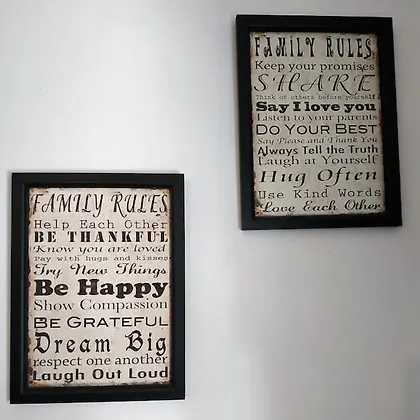 FAMILY RULES
Help Each Other
BE THANKFUL
Know you are loved
Pay with hugs and kisses
Try New Things
Be Happy
Show Compassion
BE GRATEFUL
Dream Big
respect one another
Laugh Out Loud
FAMILY RULES
Keep your promises
SHARE
Think of others before yourself
Say I love you
Listen to your parents
DO YOUR BEST
Say Please and Thank You
Always Tell the Truth
Laugh at Yourself
Hug Often
Use Kind Words
Love Each Other